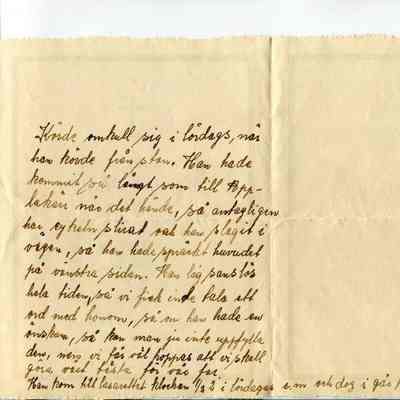 Körde omkull sig i lördags, när
han körde från stan. Han hade
kommit så långt som till Upp-
låkra när det hände, så antagligen
har cykeln slirat och han slagit i
vägen, så han hade spräckt huvudet
på vänstra sidan. Han låg sanslös
hela tiden, så vi fick inte tala ett
ord med honom, så om han hade en
önskan, så kan man ju inte uppfylla
den, men vi får väl hoppas att vi skall
göra vårt bästa för vår far.
Han kom till lasarettet klockan 1/2 2 i lördags e.m och dog i går